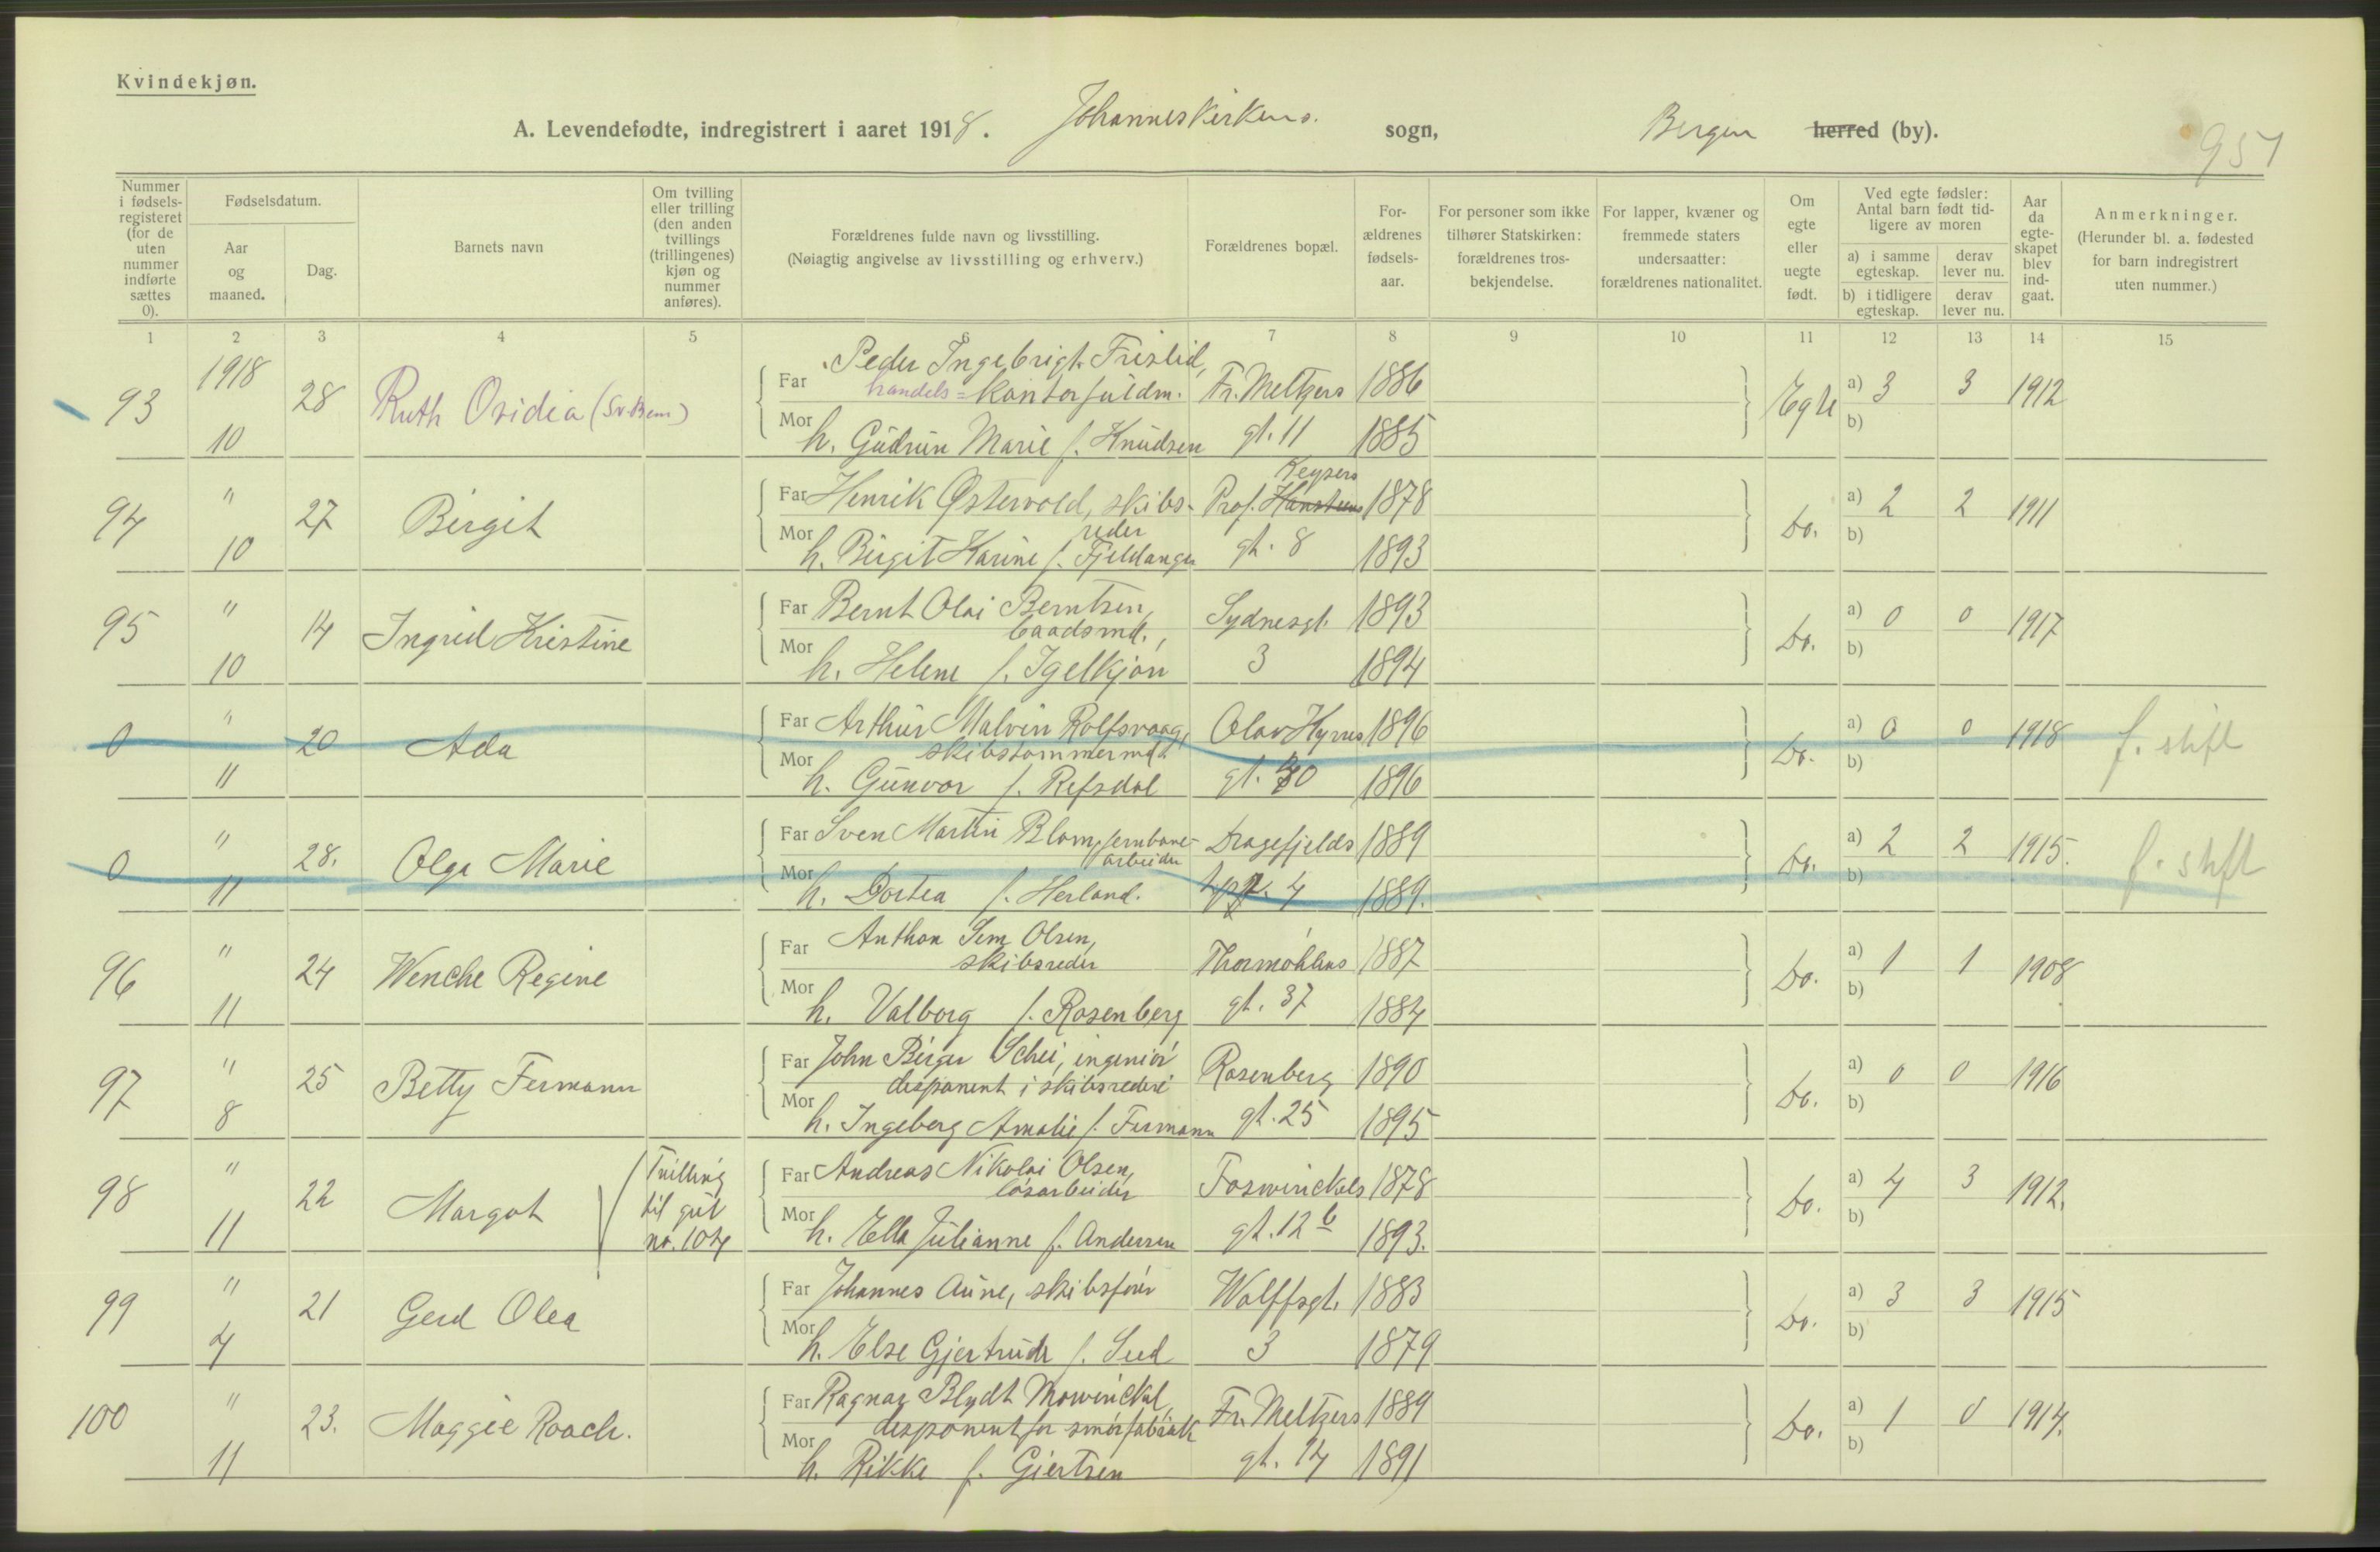 Kvindekjøn.
A. Levendefødte, indregistrert i aaret 1918. Johanneskirkens sogn, Bergen herred (by).
951
Nummer i fødsels-registeret (for de uten nummer indførte sættes 0).
Fødselsdatum.
Aar og maaned.
Dag.
Barnets navn
Om tvilling eller trilling (den anden tvillings (trillingenes) kjøn og nummer anføres).
Forældrenes fulde navn og livsstilling.
(Nøiagtig angivelse av livsstilling og erhverv.)
Forældrenes bopæl.
For-ældrenes fødsels-aar.
For personer som ikke tilhører Statskirken: forældrenes tros-bekjendelse.
For lapper, kvæner og fremmede staters undersaatter: forældrenes nationalitet.
Om egte eller uegte født.
Ved egte fødsler: Antal barn født tid-ligere av moren
a) i samme egteskap.
derav lever nu.
b) i tidligere egteskap.
derav lever nu.
Aar da egte-skapet blev ind-gaat.
Anmerkninger.
(Herunder bl. a. fødested for barn indregistrert uten nummer.)
1 2 3 4 5 6 7 8 9 10 11 12 13 14 15
93 1918 10 28 Ruth Osidia (Sv. Bem)
Far Peder Ingebrigt Frislid,
handels= kontorfuldm. Fr. Meltzers 1886 Egte a) 3 3 1912
Mor h. Gudrun Marie f. Knudsen gt. 11 1885 b)
94 " 10 27 Birgit
Keysers
Far Henrik Østervold, skibs- Prof. Hansteens 1878 Do. a) 2 2 1911
reder
Mor h. Birgit Karine f. Fjeldanger gt. 8 1893 b)
95 " 10 14 Ingrid Kristine
Far Bernt Olai Berntsen, Sydnesgt. 1893 Do. a) 0 0 1917
baadsmd.,
Mor h. Helene f. Igelkjøn 3 1894 b)
0 " 11 20 Ada
Far Arthur Malvin Rolfsvaag, Olav Kyrres 1896 Do. a) 0 0 1918 f. stift
skibstømmermdt.
Mor h. Gunvor f. Refsdal gt. 1896 b)
0 " 11 28. Olga Marie
Far Sven Martin Blom, jernbane- Dragefjelds 1889 Do. a) 2 2 1915. f. stift
arbeider
Mor h. Dortea f. Herland. 4 1889. b)
96 " 11 24 Wenche Regine
Far Anthon Sem Olsen, Thormøhlens 1887 Do. a) 1 1 1908
skibsreder
Mor h. Valborg f. Rosenberg gt. 37 1884 b)
97 " 8 25 Betty Fermann
Far John Birger Schei, ingeniør Rosenberg 1890 Do. a) 0 0 1916
disponent i skibsrederi
Mor h. Ingeborg Amalie f. Fermann gt. 25 1895 b)
98 " 11 22 Margot Tvilling til gut no. 104
Far Andreas Nikolai Olsen, Foswinckels 1878 Do. a) 4 3 1912.
løsarbeider
Mor h. Ella Julianne f. Andersen gt. 12 b 1893. b)
99 " 4 21 Gerd Olea
Far Johannes Aune, skibsfører Wolffsgt. 1883 Do. a) 3 3 1915
Mor h. Else Gjertrude f. Sud 3 1879 b)
100 " 11 23. Maggie Roach.
Far Ragnar Blydt Mowinckel, Fr. Meltzers 1889 Do. a) 1 0 1914.
disponent for smørfabrikk
Mor h. Rikke f. Giertsen gt. 14 1891 b)